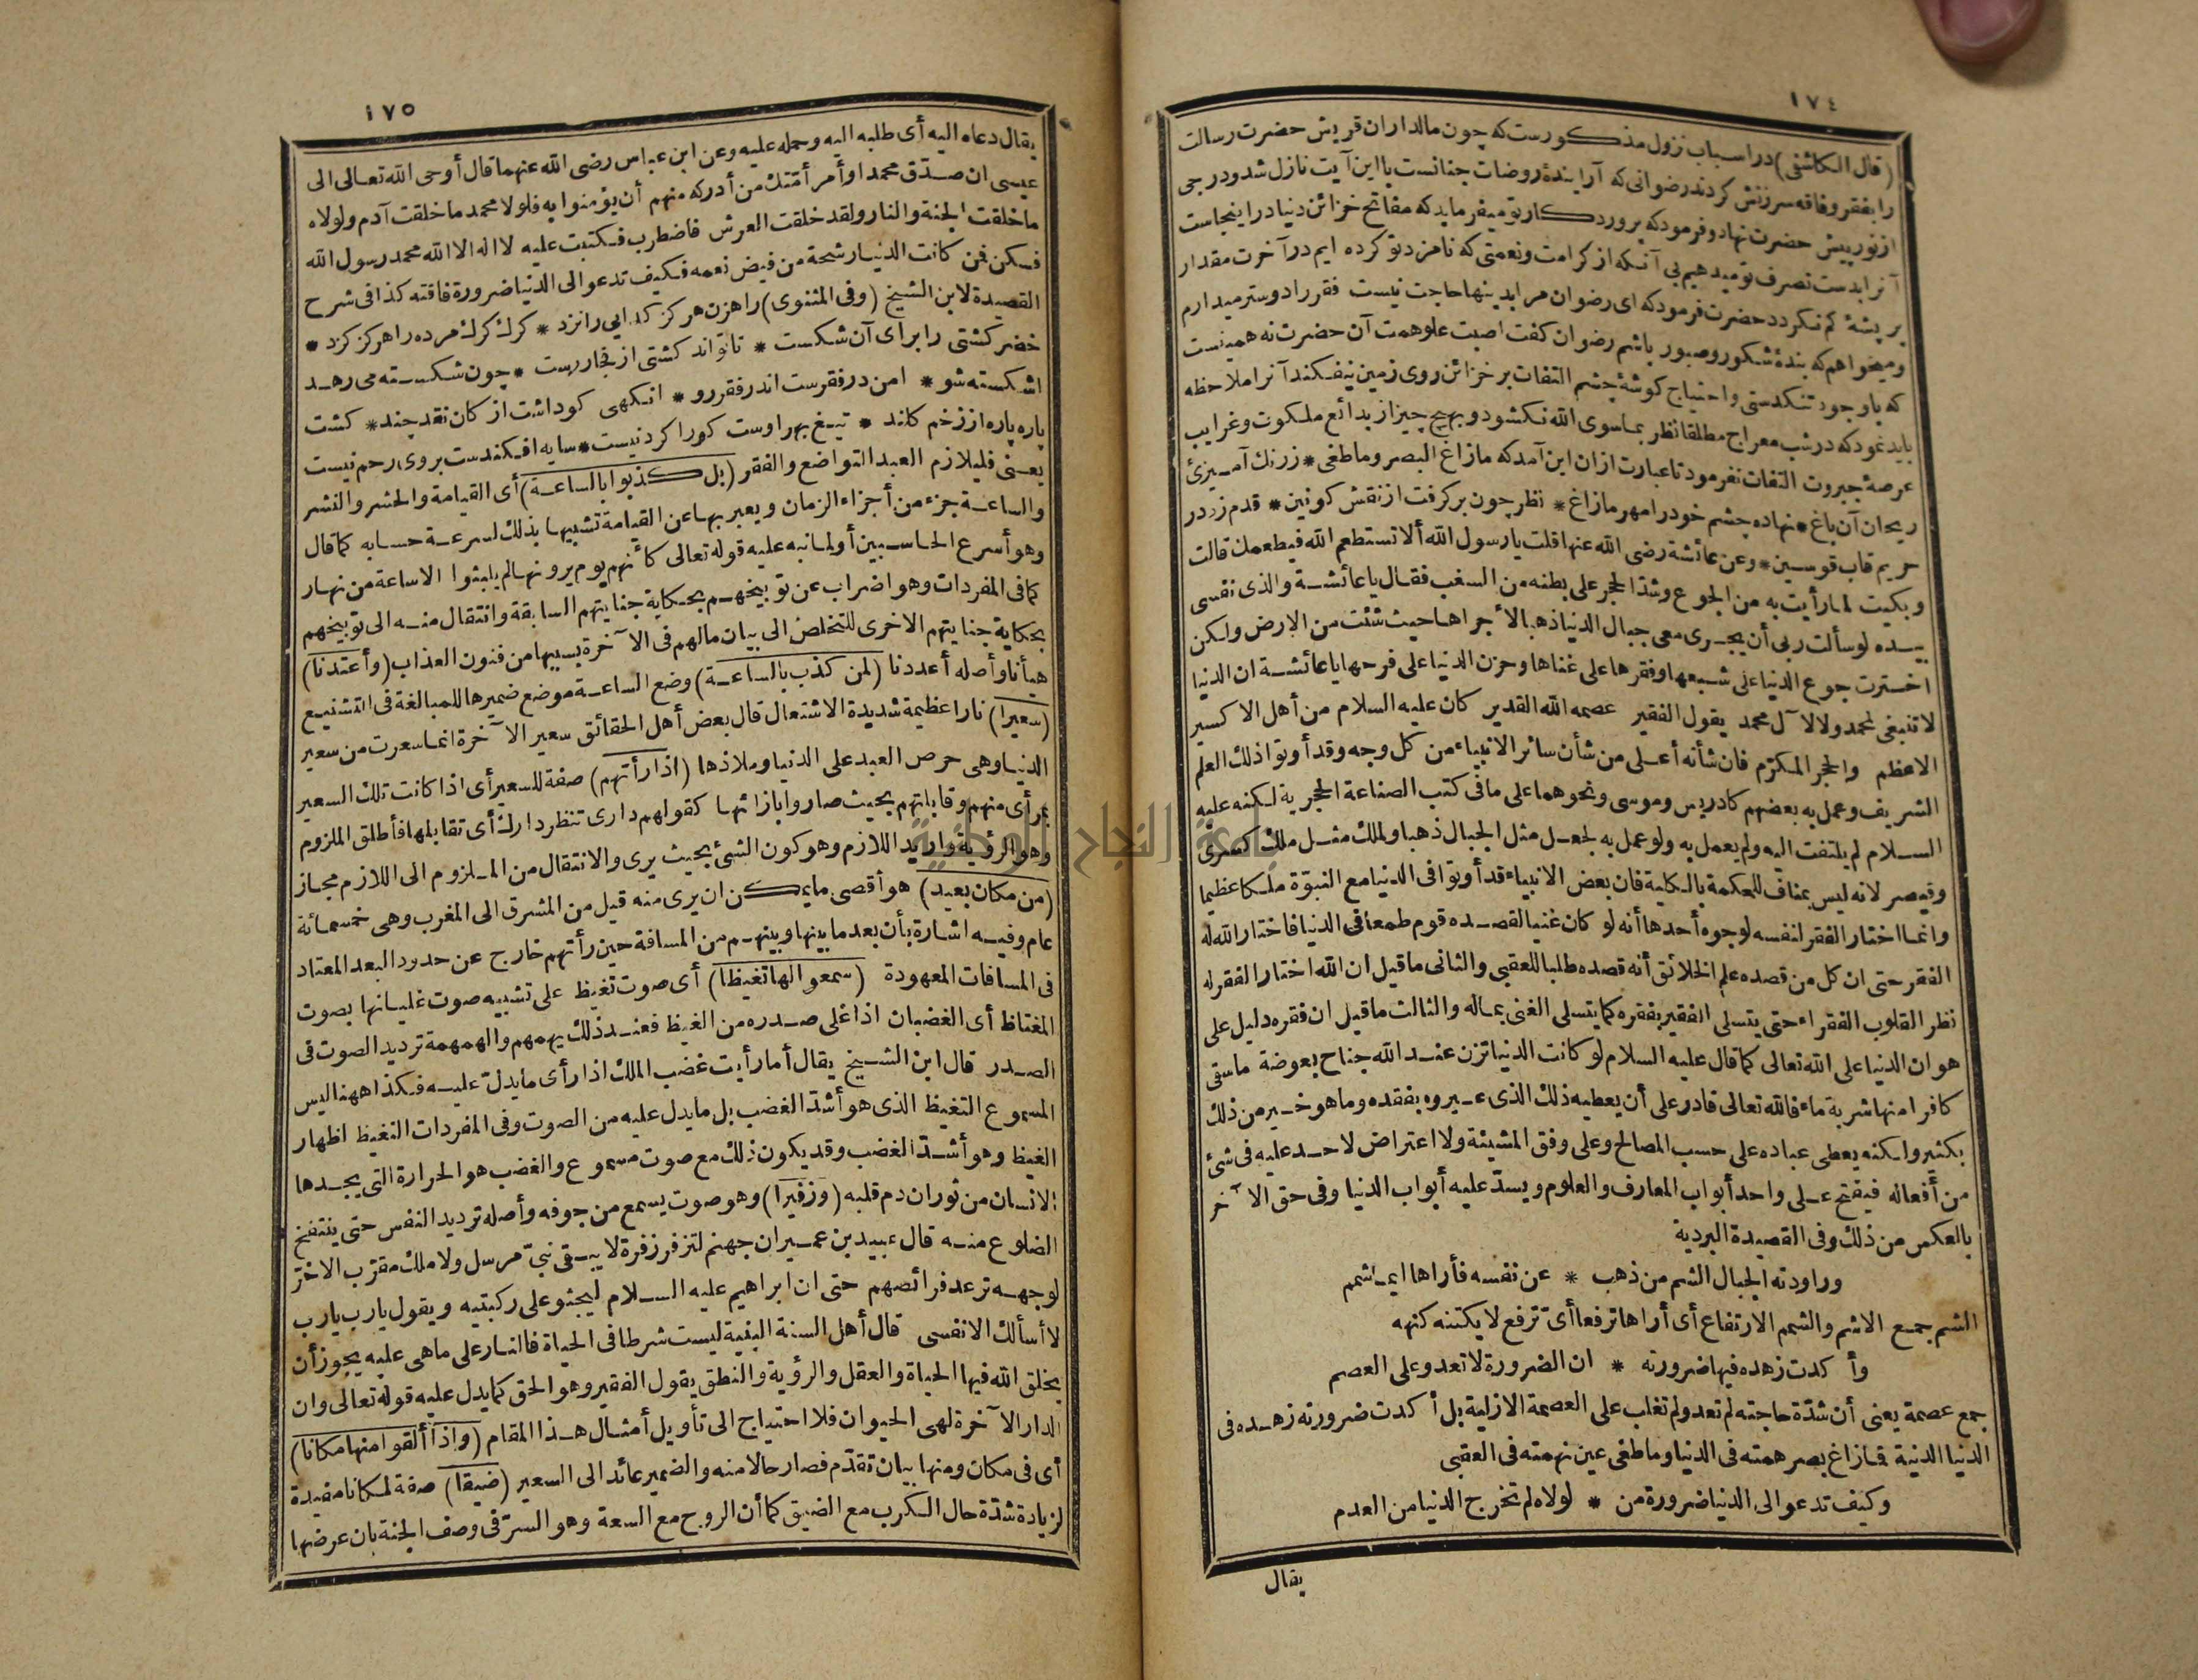 ١٧٤
(قال الكاشفى) در اسباب نزول مذكورست كه چون مالداران قريش حضرت رسالت
را بفقر وفاقه سرزنش كردند رضوانى كه آرايندهٔ روضات جنانست با اين آيت نازل شد ودرجى
از نور پيش حضرت نهاد وفرمود كه پروردكار تو ميفرمايد كه مفاتح خزائن دنيا در اينجاست
آنرا بدست تصرف تو ميدهيم بى آنكه از كرامت ونعمتى كه نامزد تو كرده ايم در آخرت مقدار
پر پشهٔ كم نكردد حضرت فرمود كه اى رضوان مرا بدينها حاجت نيست فقر را دوستر ميدارم
وميخواهم كه بندهٔ شكور وصبور باشم رضوان كفت اصبت علو همت آن حضرت نه همينست
كه باوجود تنكدستى واحتياج كوشهٔ چشم التفات بر خزائن روى زمين نيفكند آنرا ملاحظه
بايد نمود كه در شب معراج مطلقا نظر بماسوى الله نكشود وبهيچ چيز از بدائع ملكوت وغرايب
عرصهٔ جبروت التفات نفرمود تا عبارت ازان اين آمد كه مازاغ البصر وماطغى * زرنك آميزئ
ريحان آن باغ * نهاده چشم خود را مهر مازاغ * نظر چون بركرفت از نقش كونين * قدم زد در
حريم قاب قوسين * وعن عائشة رضى الله عنها قلت يارسول الله ألا تستطعم الله فيطعمك قالت
وبكيت لما رأيت به من الجوع وشد الحجر على بطنه من السغب فقال ياعائشة والذى نفسى
بيده لو سألت ربى أن يجرى معى جبال الدنيا ذهبا لأجراها حيث شئت من الارض ولكن
اخترت جوع الدنيا على شبعها وفقرها على غناها وحزن الدنيا على فرحها ياعائشة ان الدنيا
لا تنبغى لمحمد ولا لآل محمد يقول الفقير عصمه الله القدير كان عليه السلام من أهل الاكسير
الاعظم والحجر المكرّم فان شأنه أعلى من شأن سائر الانبياء من كل وجه وقد أوتوا ذلك العلم
الشريف وعمل به بعضهم كادريس وموسى ونحوهما على ما فى كتب الصناعة الحجرية لكنه عليه
السلام لم يلتفت اليه ولم يعمل به ولو عمل به لجعل مثل الجبال ذهبا ولملك مثل ملك كسرى
وقيصر لانه ليس بمناف للحكمة بالكلية فان بعض الانبياء قد أوتوا فى الدنيا مع النبوّة ملكا عظيما
وانما اختار الفقر لنفسه لوجوه أحدها أنه لو كان غنيا لقصده قوم طمعا فى الدنيا فاختار الله له
الفقر حتى ان كل من قصده علم الخلائق أنه قصده طلبا للعقبى والثانى ما قيل ان الله اختار الفقر له
نظر القلوب الفقراء حتى يتسلى الفقير بفقره كما يتسلى الغنى بماله والثالث ما قيل ان فقره دليل على
هوان الدنيا على الله تعالى كما قال عليه السلام لو كانت الدنيا تزن عند الله جناح بعوضة ما سقى
كافرا منها شربة ماء فالله تعالى قادر على أن يعطيه ذلك الذى عيروه بفقده وما هو خير من ذلك
بكثير ولكنه يعطى عباده على حسب المصالح وعلى وفق المشيئة ولا اعتراض لاحد عليه فى شئ
من أفعاله فيفتح على واحد أبواب المعارف والعلوم ويسدّ عليه أبواب الدنيا وفى حق الآخر
بالعكس من ذلك وفى القصيدة البردية
وراودته الجبال الشم من ذهب * عن نفسه فأراها ايما شمم
الشم جمع الاشم والشمم الارتفاع أى أراها ترفعا أى ترفع لا يكتنه كنهه
وأكدت زهده فيها ضرورته * ان الضرورة لا تعدو على العصم
جمع عصمة يعنى أن شدّة حاجته لم تعد ولم تغلب على العصمة الازلية بل أكدت ضرورته زهده فى
الدنيا الدنية فما زاغ بصر همته فى الدنيا وما طغى عين نهمته فى العقبى
وكيف تدعو الى الدنيا ضرورة من * لولاه لم تخرج الدنيا من العدم
يقال
١٧٥
يقال دعاه اليه أى طلبه اليه وحمله عليه وعن ابن عباس رضى الله عنهما قال أوحى الله تعالى الى
عيسى ان صدّق محمدا وأمر أمّتك من أدركه منهم أن يؤمنوا به فلولا محمد ما خلقت آدم ولولاه
ما خلقت الجنة والنار ولقد خلقت العرش فاضطرب فكتبت عليه لا اله الا الله محمد رسول الله
فسكن فمن كانت الدنيا رشحة من فيض نعمه فكيف تدعو الى الدنيا ضرورة فاقته كذا فى شرح
القصيدة لابن الشيخ (وفى المثنوى) راهزن هركز كدايى رانزد * كرك كرك مرده را هركز كزد *
خضر كشتى را براى آن شكست * تا تواند كشتى از فجار رست * چون شكسته مى رهد
اشكسته شو * امن در فقرست اندر فقر رو * آنكهى كو داشت از كان نقد چند * كشت
پاره پاره از زخم كلند * تيغ بهر اوست كورا كردنيست * سايه افكندست بروى رحم نيست
يعنى فليلازم العبد التواضع والفقر (بل كذبوا بالساعة) أى القيامة والحشر والنشر
والساعة جزء من أجزاء الزمان ويعبر بها عن القيامة تشبيها بذلك لسرعة حسابه كما قال
وهو أسرع الحاسبين أو لما نبه عليه قوله تعالى كأنهم يوم يرونها لم يلبثوا الا ساعة من نهار
كما فى المفردات وهو اضراب عن توبيخهم بحكاية جنايتهم السابقة وانتقال منه الى توبيخهم
بحكاية جنايتهم الاخرى للتخلص الى بيان مالهم فى الآخرة بسببها من فنون العذاب (وأعتدنا)
هيأنا وأصله أعددنا (لمن كذب بالساعة) وضع الساعة موضع ضميرها للمبالغة فى التشنيع
(سعيرا) نارا عظيمة شديدة الاشتعال قال بعض أهل الحقائق سعير الآخرة انما سعرت من سعير
الدنيا وهى حرص العبد على الدنيا وملاذها (اذا رأتهم) صفة للسعير أى اذا كانت تلك السعير
بمرأى منهم وقابلتهم بحيث صاروا بازائها كقولهم دارى تنظر دارك أى تقابلها فأطلق الملزوم
وهو الرؤية وأريد اللازم وهو كون الشئ بحيث يرى والانتقال من الملزوم الى اللازم مجاز
(من مكان بعيد) هو أقصى ما يمكن ان يرى منه قيل من المشرق الى المغرب وهى خمسمائة
عام وفيه اشارة بأن بعد ما بينها وبينهم من المسافة حين رأتهم خارج عن حدود البعد المعتاد
فى المسافات المعهودة (سمعوا لها تغيظا) أى صوت تغيظ على تشبيه صوت غليانها بصوت
المغتاظ أى الغضبان اذا غلى صدره من الغيظ فعند ذلك يهمهم والهمهمة ترديد الصوت فى
الصدر قال ابن الشيخ يقال أما رأيت غضب الملك اذا رأى ما يدلّ عليه فكذا ههنا ليس
المسموع التغيظ الذى هو أشدّ الغضب بل ما يدل عليه من الصوت وفى المفردات التغيظ اظهار
الغيظ وهو أشدّ الغضب وقد يكون ذلك مع صوت مسموع والغضب هو الحرارة التى يجدها
الانسان من ثوران دم قلبه (وزفيرا) وهو صوت يسمع من جوفه وأصله ترديد النفس حتى ينتفخ
الضلوع منه قال عبيد بن عمير ان جهنم لتزفر زفرة لا يبقى نبىّ مرسل ولا ملك مقرّب الا خرّ
لوجهه ترعد فرائصهم حتى ان ابراهيم عليه السلام ليجثو على ركبتيه ويقول يارب يارب
لا أسألك الا نفسى قال أهل السنة البنية ليست شرطا فى الحياة فالنار على ما هى عليه يجوز أن
يخلق الله فيها الحياة والعقل والرؤية والنطق يقول الفقير وهو الحق كما يدل عليه قوله تعالى وان
الدار الآخرة لهى الحيوان فلا احتياج الى تأويل أمثال هذا المقام (واذا ألقوا منها مكانا)
أى فى مكان ومنها بيان تقدّم فصار حالا منه والضمير عائد الى السعير (ضيقا) صفة لمكانا مفيدة
لزيادة شدّة حال الكرب مع الضيق كما أن الروح مع السعة وهو السرّ فى وصف الجنة بان عرضها